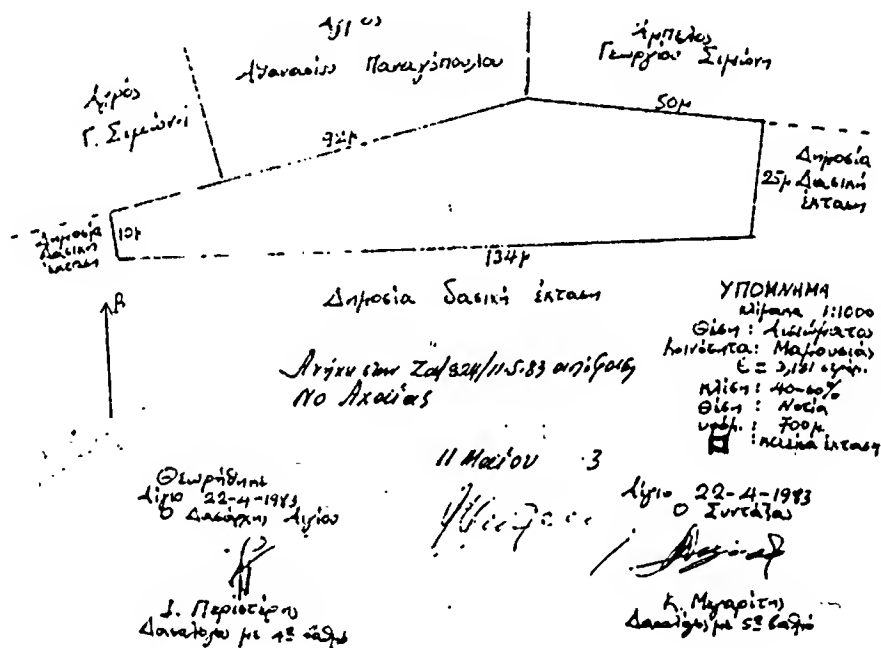 Αγρός
Αθανασίου Παναγόπουλου
Άμπελος
Γεωργίου Σιμιώνη
Αγρός
Γ. Σιμιώνη
92μ
50μ
Δημοσία
Δασική
έκταση
25μ
10μ
Δημοσία
Δασική
έκταση
134μ
Δημοσία δασική έκταση
β
ΥΠΟΜΝΗΜΑ
κλίμακα 1:1000
Θέση :
Κοινότητα: Μαμουσιάς
Ε = 3,131 στρέμ.
Κλίση : 40-60%
Θέση : Νοτία
υψόμ. : 700μ
έκταση
Ανήκει στην ΤΔ/824/11.5.83 απόφαση
Νο Αχαΐας
11 Μαΐου 3
Θεωρήθηκε
Αίγιο 22-4-1983
Ο Δασάρχης Αιγίου
Ι. Περιστέρης
Δασολόγος με 4º βαθμό
Αίγιο 22-4-1983
Ο Συντάξας
Κ. Μεγαρίτης
με 5º βαθμό